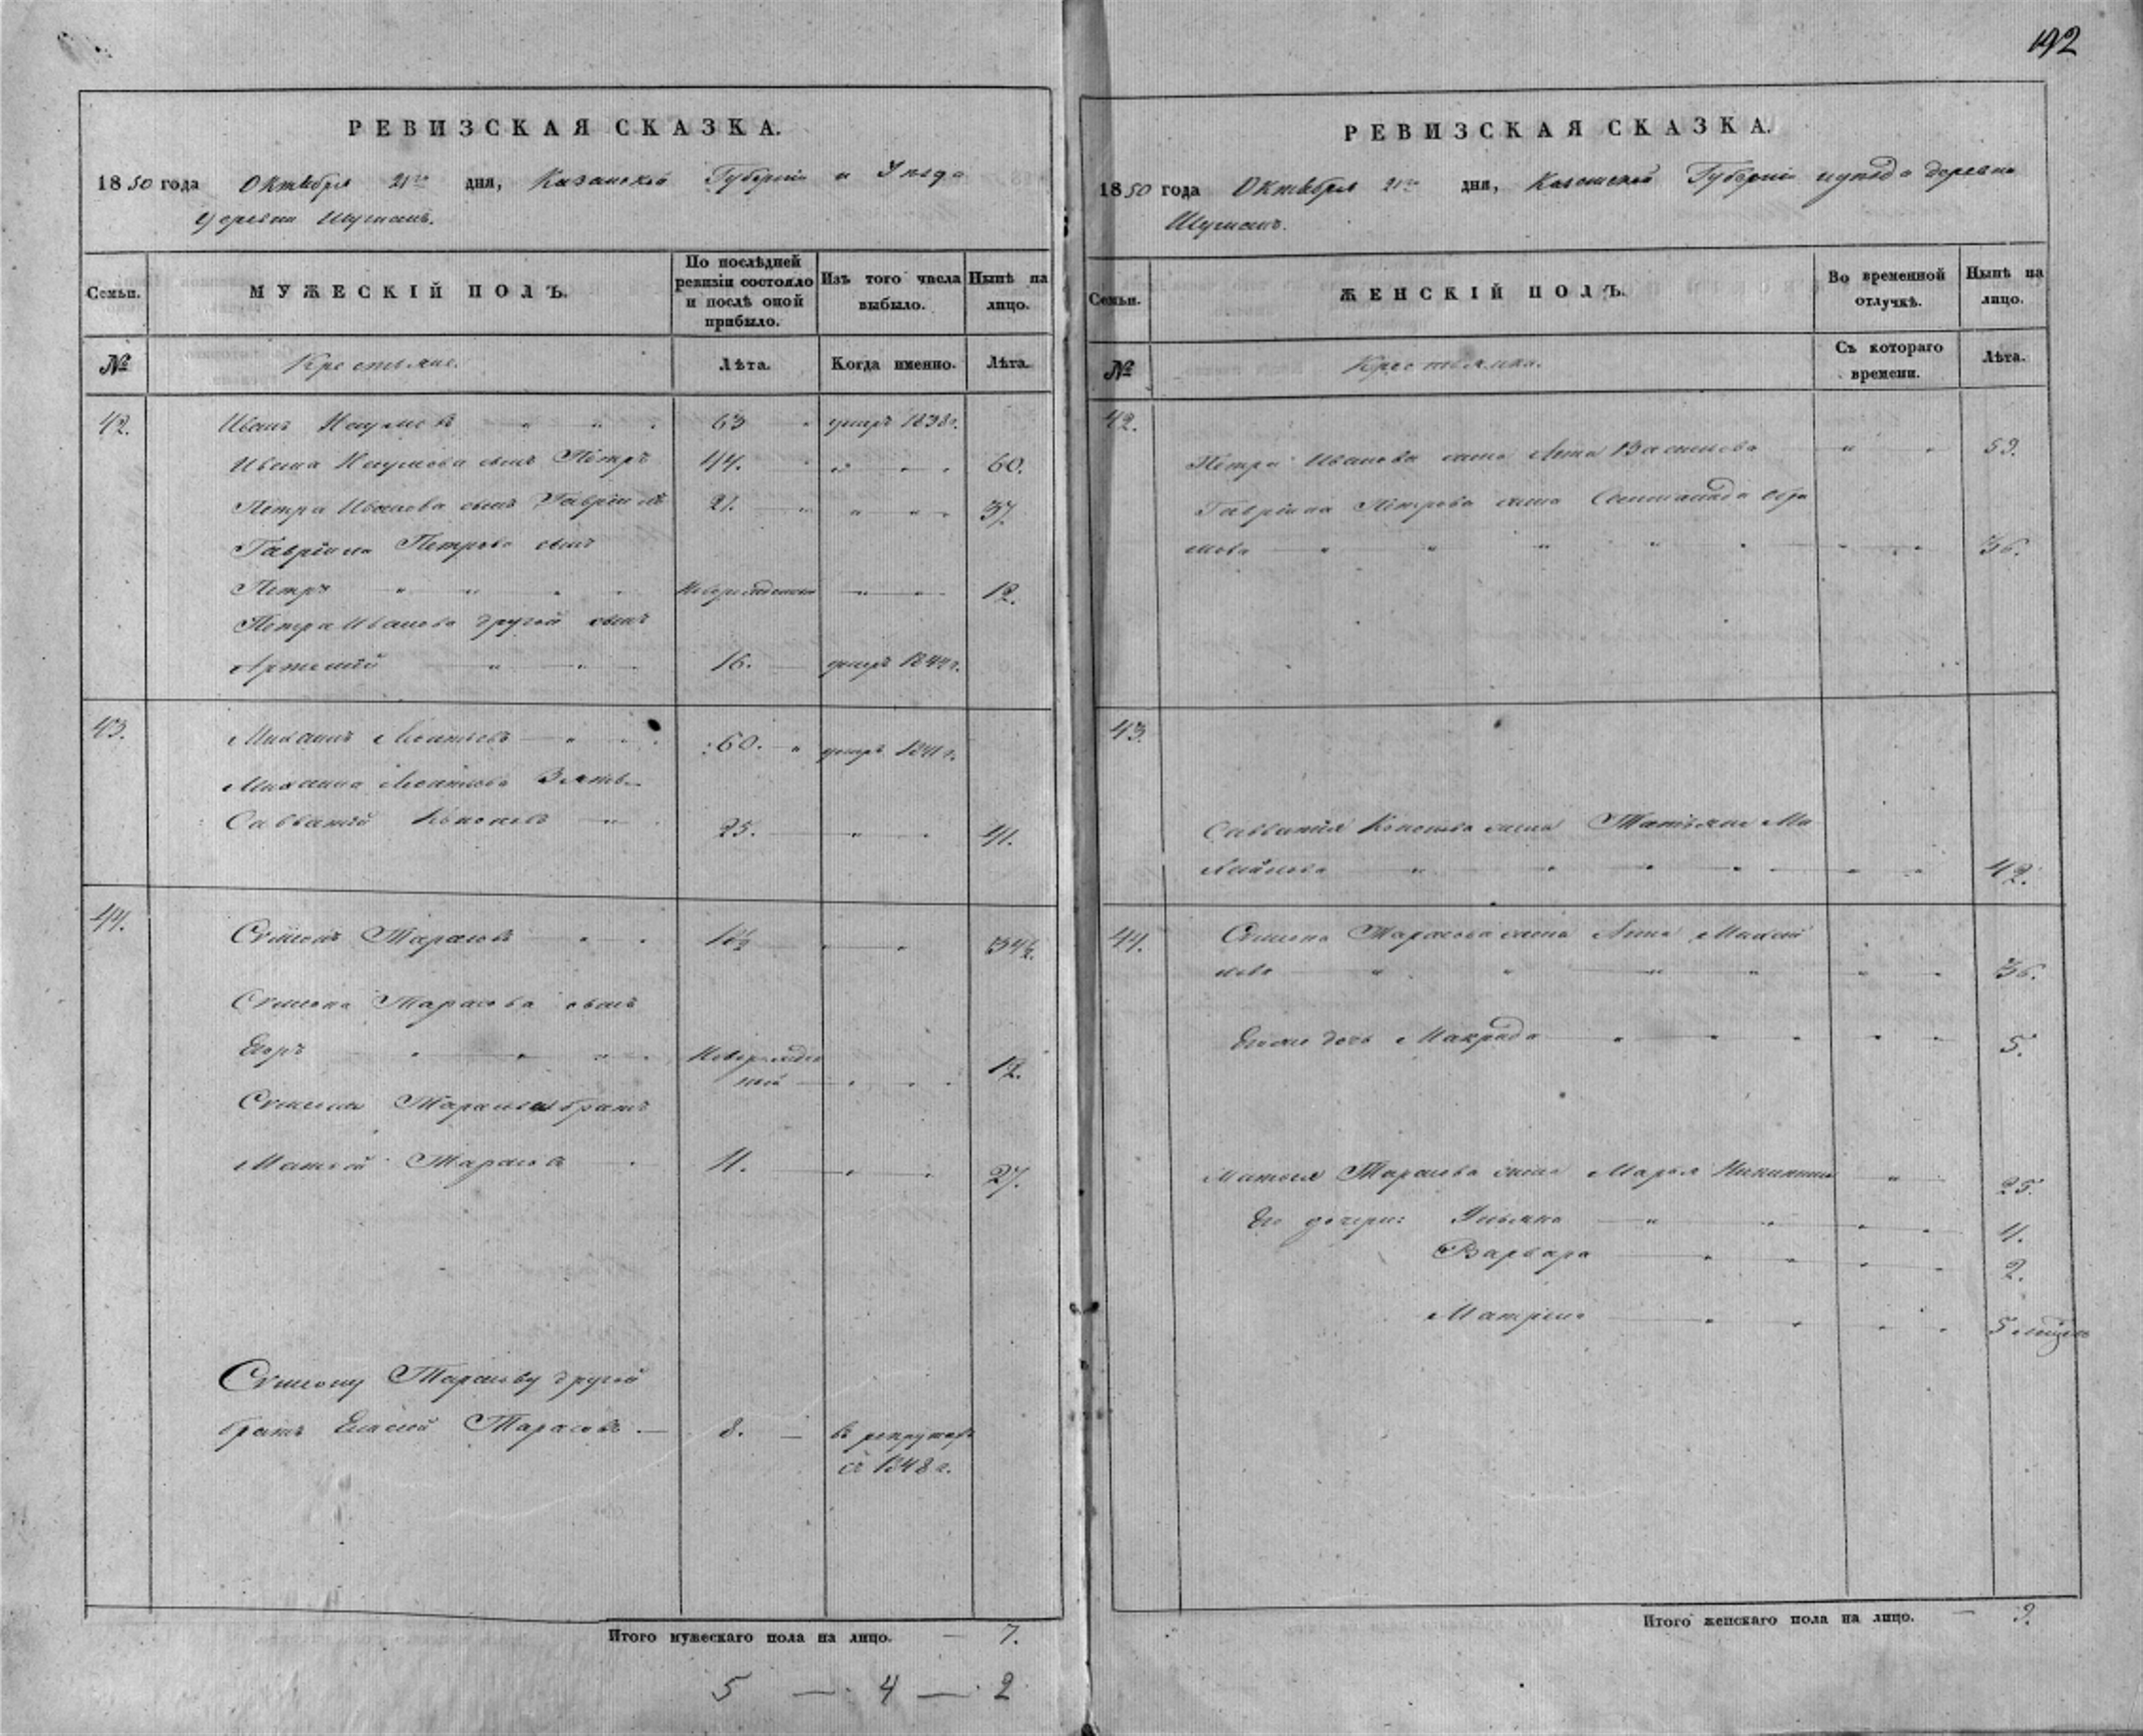 192
РЕВИЗСКАЯ СКАЗКА.
1850 года Октября 21го дня, Казанской Губернiи и Уѣзда
Деревни Шуманъ.
Семьи. МУЖЕСКIЙ ПОЛЪ. По послѣдней ревизiи состояло и послѣ оной прибыло. Изъ того числа выбыло. Нынѣ на лицо.
№ Крестьяне. Лѣта. Когда именно. Лѣта.
42. Иванъ Наумовъ 63 умеръ 1838г.
Ивана Наумова сынъ Петръ 44. 60.
Петра Иванова сынъ Гаврiилъ 21. 37.
Гаврiила Петрова сынъ
Петръ Новорожденный 12.
Петра Иванова другой сынъ
Артемiй 16. умеръ 1844г.
43. Михаилъ Леонтьевъ 60. умеръ 1841г.
Михаила Леонтьева Зять
Савватiй Кононовъ 25. 41.
44. Семенъ Тарасовъ 18½ 34½.
Семена Тарасова сынъ
Егоръ Новорожден
ный 12.
Семена Тарасова братъ
Матвей Тарасовъ 11. 27.
Семену Тарасову другой
братъ Елисей Тарасовъ 8. въ рекрутахъ
съ 1848г.
Итого мужескаго пола на лицо. 7.
5 — 4 — 2
РЕВИЗСКАЯ СКАЗКА.
1850 года Октября 21го дня, Казанской Губернiи и уѣзда деревни
Шуманъ.
Семьи. ЖЕНСКIЙ ПОЛЪ. Во временной отлучкѣ. Нынѣ на лицо.
№ Крестьянка. Съ котораго времени. Лѣта.
42.
Петра Иванова жена Анна Васильева 59.
Гаврiила Петрова жена
36.
43.
Савватiя Кононова жена Татьяна Ми
хайлова 42.
44. Семена Тарасова жена Анна Михай
лова 36.
Его дочь Макрида 5.
Матвея Тарасова жена Марья Никитина 25.
Его дочери: Ульяна 4.
Варвара 2.
Матрена 5 недѣль
Итого женскаго пола на лицо. — 9.